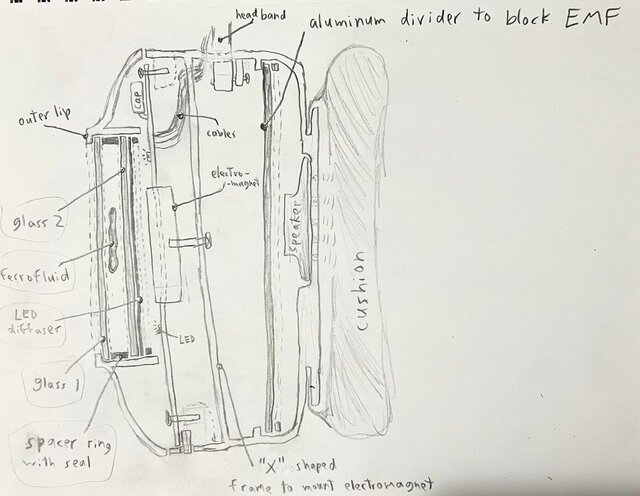 head band
aluminum divider to block EMF
cap
outer lip
cables
electro-
-magnet
glass 2
speaker
ferrofluid
cushion
LED
diffuser
LED
glass 1
spacer ring
with seal
"X" shaped
frame to mount electromagnet